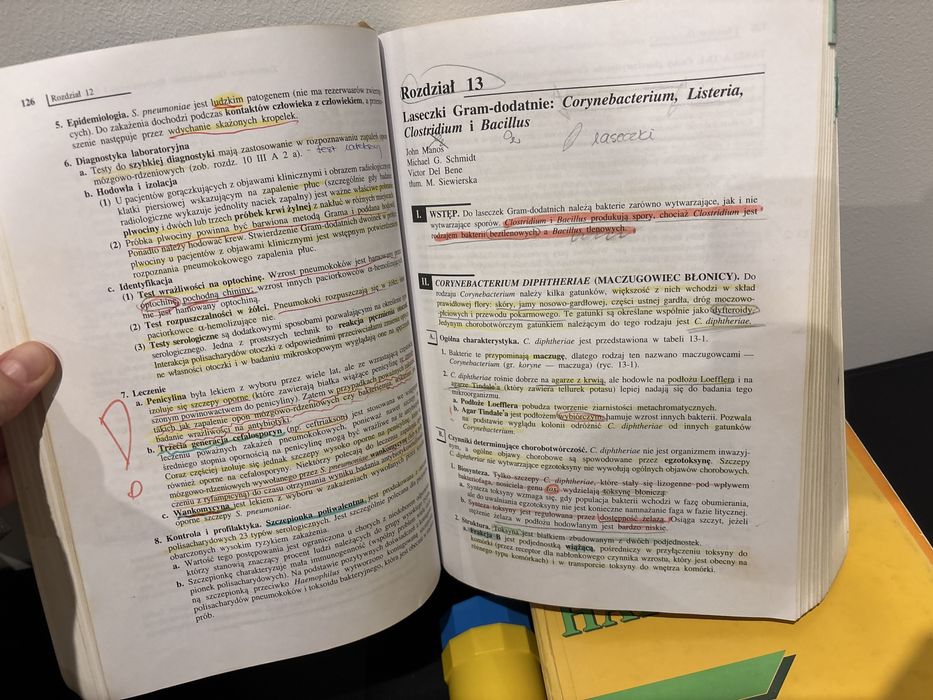 126 Rozdział 12
5. Epidemiologia. S. pneumoniae jest ludzkim patogenem (nie ma rezerwuarów
cych). Do zakażenia dochodzi podczas kontaktów człowieka z człowiekiem, a
szenie następuje przez wdychanie skażonych kropelek.
6. Diagnostyka laboratoryjna
a. Testy do szybkiej diagnostyki mają zastosowanie w rozpoznawaniu zapaleń
mózgowo-rdzeniowych (zob. rozdz. 10 III A 2 a). - test
b. Hodowla i izolacja
(1) U pacjentów gorączkujących z objawami klinicznymi i obrazem radiologicznym
klatki piersiowej wskazującym na zapalenie płuc (szczególnie gdy
radiologiczne wykazuje jednolity naciek zapalny) jest ważne właściwe
plwociny i dwóch lub trzech próbek krwi żylnej z nakłuć w różnych miejscach
(2) Próbka plwociny powinna być barwiona metodą Grama i poddana hodowli.
Ponadto należy hodować krew. Stwierdzenie Gram-dodatnich dwoinek w
plwociny u pacjentów z objawami klinicznymi jest wstępnym potwierdzeniem
rozpoznania pneumokokowego zapalenia płuc.
c. Identyfikacja
(1) Test wrażliwości na optochinę. Wzrost pneumokoków jest hamowany
optochinę pochodną chininy; wzrost innych paciorkowców α-hemolizujących
nie jest hamowany optochiną.
(2) Test rozpuszczalności w żółci. Pneumokoki rozpuszczają się w żółci,
paciorkowce α-hemolizujące nie.
(3) Testy serologiczne są dodatkowymi sposobami pozwalającymi na określenie
serologicznego. Jedna z prostszych technik to reakcja pęcznienia
Interakcja polisacharydów otoczki z odpowiednimi przeciwciałami zmienia
ne własności otoczki i w badaniu mikroskopowym wyglądają one na
7. Leczenie
a. Penicylina była lekiem z wyboru przez wiele lat, ale ze wzrastającą
izoluje się szczepy oporne (które zawierają białka wiążące penicylinę
szonym powinowactwem do penicyliny). Zatem w przypadkach
takich jak zapalenie opon mózgowo-rdzeniowych czy bakteriemia,
badanie wrażliwości na antybiotyki.
b. Trzecia generacja cefalosporyn (np. ceftriakson) jest stosowana we
leczeniu poważnych zakażeń pneumokokowych, ponieważ nawet
średniego stopnia opornością na penicylinę mogą być wrażliwe na
Coraz częściej izoluje się jednak szczepy wysoko oporne na penicylinę,
oporne na cefalosporyny. Niektórzy polecają do leczenia
mózgowo-rdzeniowych wywołanego przez S. pneumoniae wankomycynę
czeniu z ryfampicyną) do czasu otrzymania wyniku badania antybiotykowrażliwości
c. Wankomycyna jest lekiem z wyboru w zakażeniach wywołanych przez
oporne szczepy S. pneumoniae.
8. Kontrola i profilaktyka. Szczepionka poliwalentna jest produkowana
polisacharydowych 23 typów serologicznych. Jest szczególnie polecana
obarczonych wysokim ryzykiem zakażenia pneumokokami.
a. Wartość tego postępowania jest ograniczona u chorych z niedoborem
którzy stanowią znaczny procent ludzi należących do grupy wysokiego
b. Szczepionkę charakteryzuje mała immunogenność (wspólny problem
pionek polisacharydowych). Na podstawie pozytywnych doświadczeń
ną szczepionką przeciwko Haemophilus wytworzono koniugat
polisacharydów pneumokoków i toksoidu bakteryjnego, który
prób.
Rozdział 13
Laseczki Gram-dodatnie: Corynebacterium, Listeria,
Clostridium i Bacillus
laseczki
John Manos
Michael G. Schmidt
Victor Del Bene
tłum. M. Siewierska
I. WSTĘP. Do laseczek Gram-dodatnich należą bakterie zarówno wytwarzające, jak i nie
wytwarzające sporów. Clostridium i Bacillus produkują spory, chociaż Clostridium jest
rodzajem bakterii beztlenowych, a Bacillus tlenowych.
II. CORYNEBACTERIUM DIPHTHERIAE (MACZUGOWIEC BŁONICY). Do
rodzaju Corynebacterium należy kilka gatunków, większość z nich wchodzi w skład
prawidłowej flory: skóry, jamy nosowo-gardłowej, części ustnej gardła, dróg moczowo-
-płciowych i przewodu pokarmowego. Te gatunki są określane wspólnie jako dyfteroidy.
Jedynym chorobotwórczym gatunkiem należącym do tego rodzaju jest C. diphtheriae.
Ogólna charakterystyka. C. diphtheriae jest przedstawiona w tabeli 13-1.
1. Bakterie te przypominają maczugę, dlatego rodzaj ten nazwano maczugowcami —
Corynebacterium (gr. koryne — maczuga) (ryc. 13-1).
2. C. diphtheriae rośnie dobrze na agarze z krwią, ale hodowle na podłożu Loefflera i na
agarze Tindale'a (który zawiera tellurek potasu) lepiej nadają się do badania tego
mikroorganizmu.
a. Podłoże Loefflera pobudza tworzenie ziarnistości metachromatycznych.
b. Agar Tindale'a jest podłożem wybiórczym, hamuje wzrost innych bakterii. Pozwala
na podstawie wyglądu kolonii odróżnić C. diphtheriae od innych gatunków
Corynebacterium.
Czynniki determinujące chorobotwórczość. C. diphtheriae nie jest organizmem inwazyj-
nym, a ogólne objawy chorobowe są spowodowane przez egzotoksynę. Szczepy
C. diphtheriae nie wytwarzające egzotoksyny nie wywołują ogólnych objawów chorobowych.
1. Biosynteza. Tylko szczepy C. diphtheriae, które stały się lizogenne pod wpływem
bakteriofaga, nosiciela genu tox, wydzielają toksynę błoniczą.
a. Synteza toksyny wzmaga się, gdy populacja bakterii wchodzi w fazę obumierania,
ale do uwalniania egzotoksyny nie jest konieczne namnażanie faga w fazie litycznej.
b. Synteza toksyny jest regulowana przez dostępność żelaza. Osiąga szczyt, jeżeli
stężenie żelaza w podłożu hodowlanym jest bardzo niskie.
2. Struktura. Toksyna jest białkiem zbudowanym z dwóch podjednostek.
Frakcja B jest podjednostką wiążącą, pośredniczy w przyłączeniu toksyny do
komórki (przez receptor dla nabłonkowego czynnika wzrostu, który jest obecny na
różnego typu komórkach) i w transporcie toksyny do wnętrza komórki.